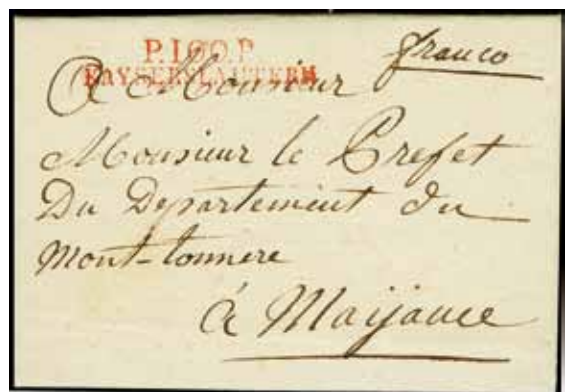 P.100.P
KAYSERSLAUTERN
franco
A Monsieur
Monsieur le Prefet
Du Departement du
Mont-tonnere
à Maijance